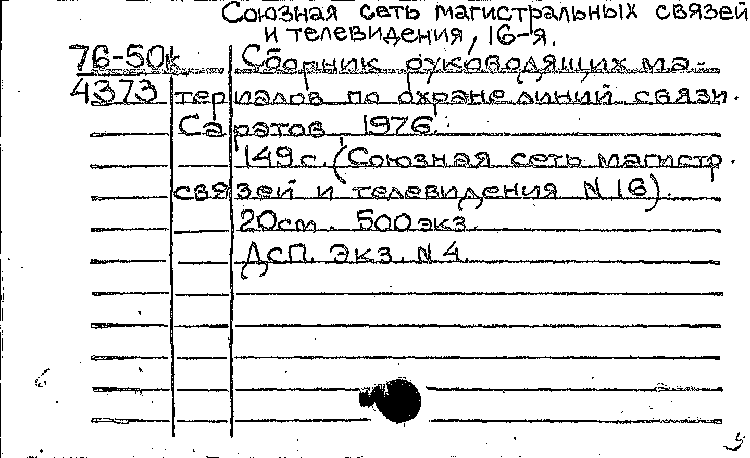 Союзная сеть магистральных связей
и телевидения, 16-я.
76-50к Сборник руководящих ма-
4373 териалов по охране линий связи.
Саратов 1976.
149 с. (Союзная сеть магистр.
связей и телевидения N 16).
20 см. 500 экз.
ДСП. Экз. N 4.
6